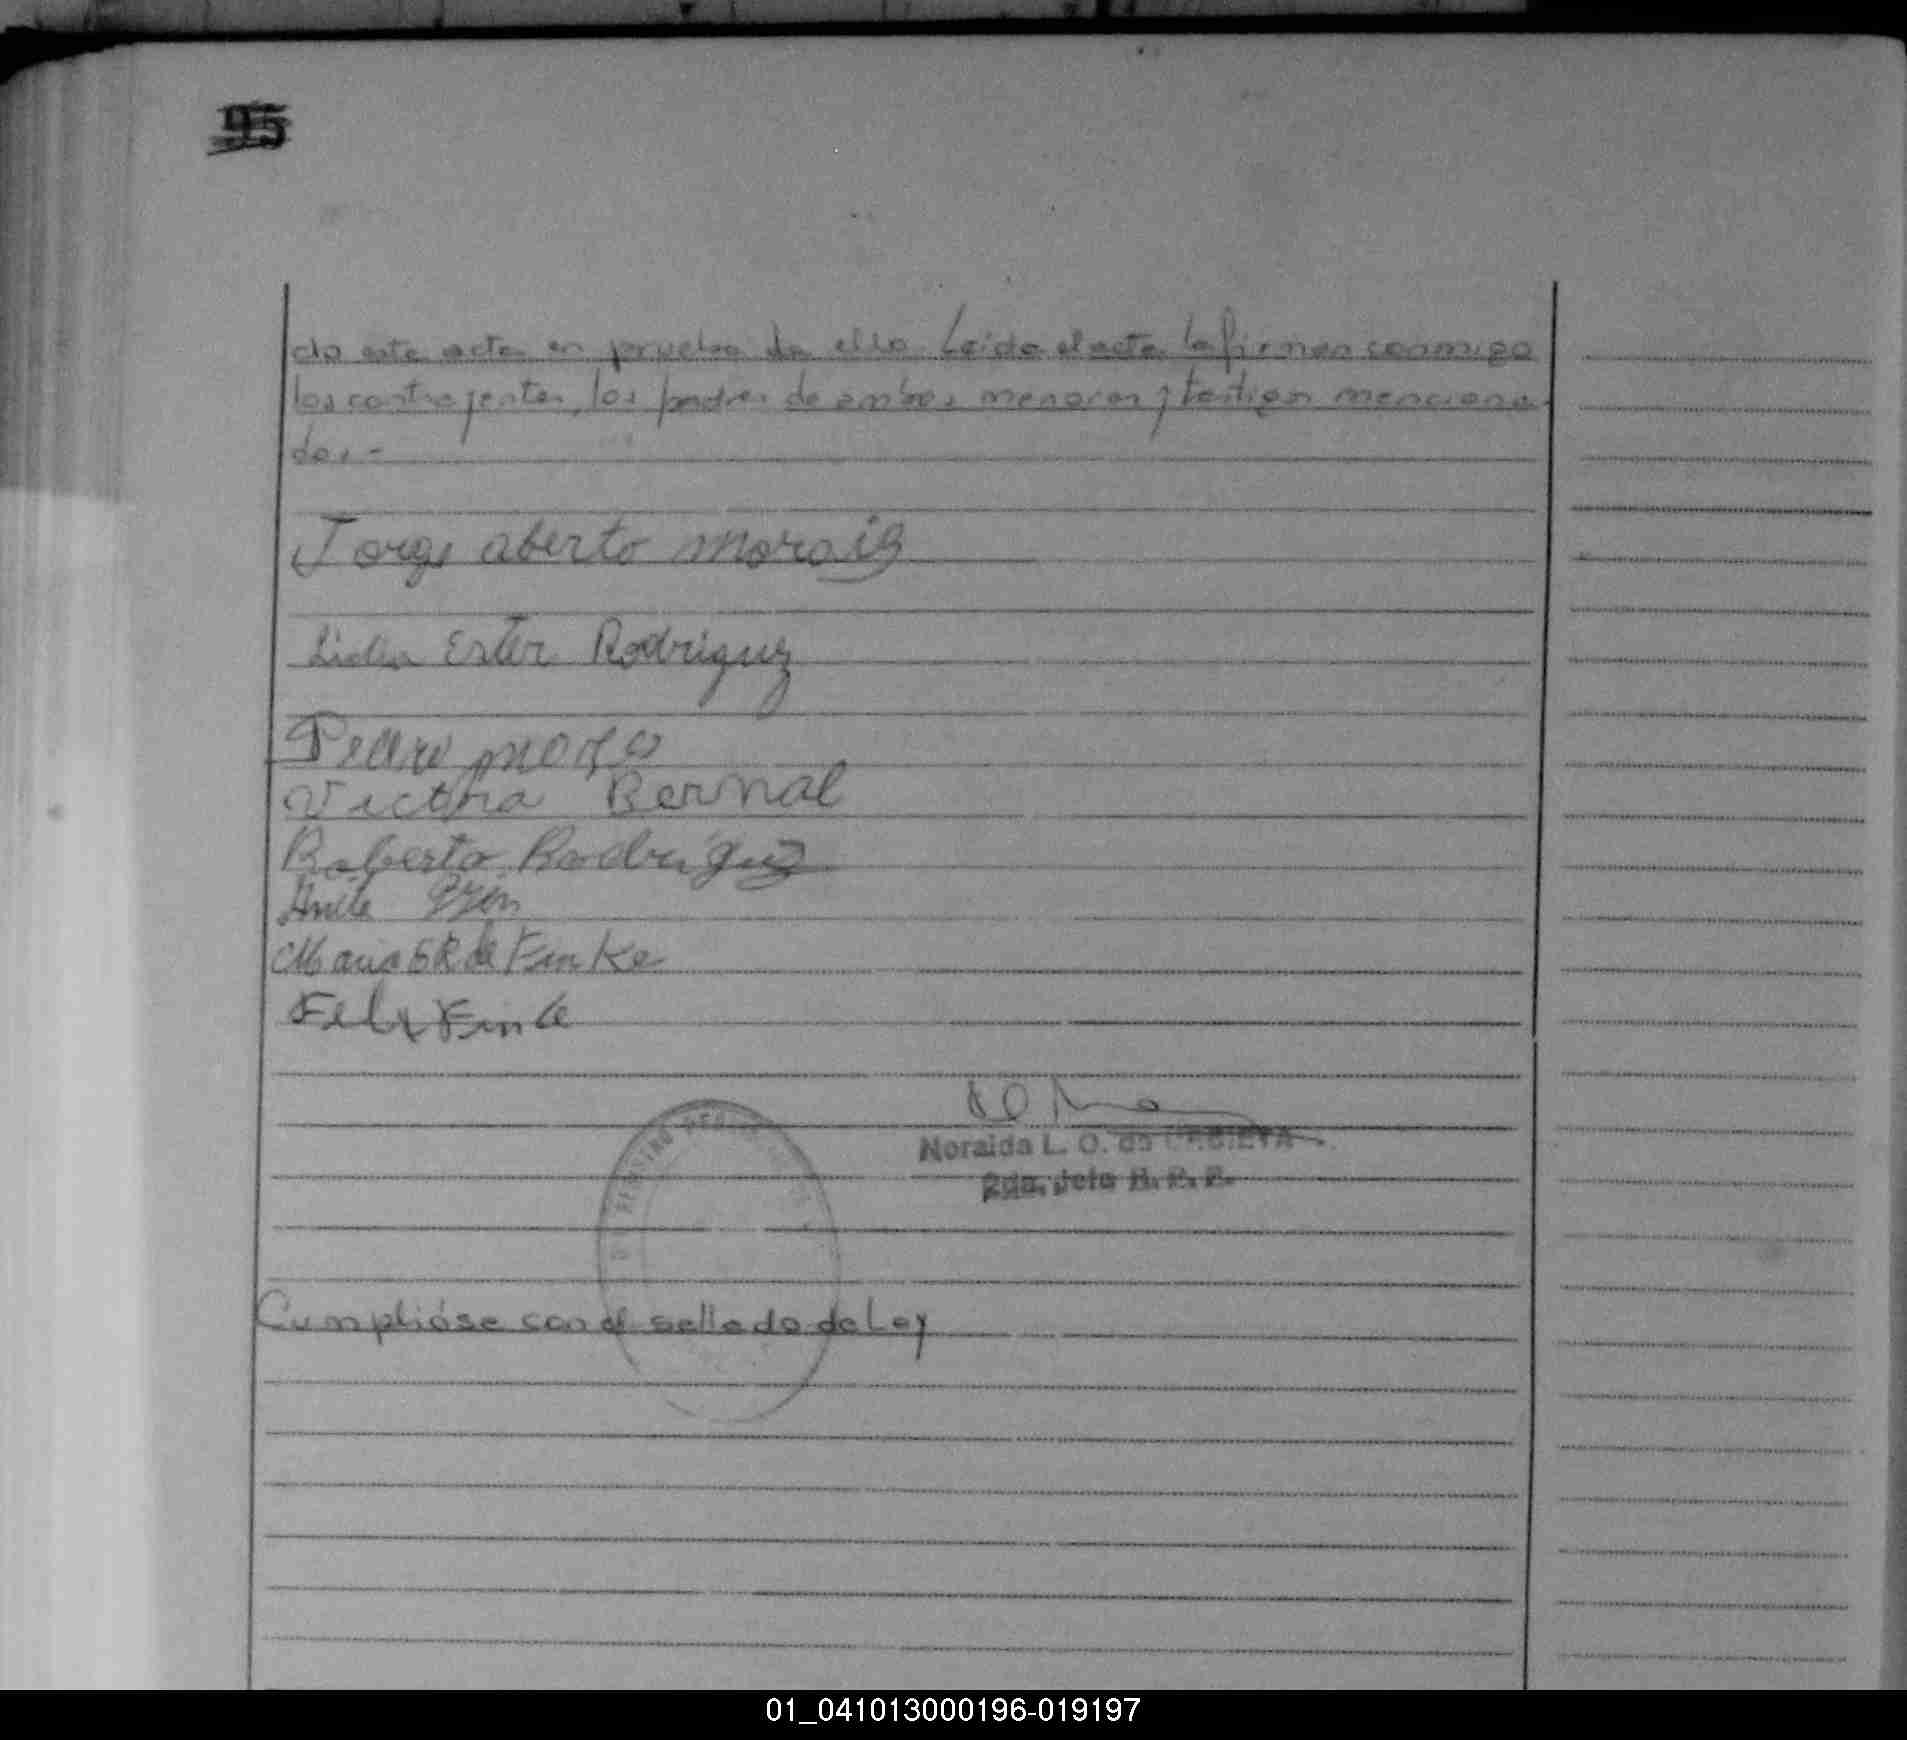 95
do esta acta en prueba de ello. Leida el acta la firman conmigo
los contrayentes, los padres de ambos menores y testigos menciona-
dos.-
Jorge aberto morais
Lidia Ester Rodriguez
Pedro
Victoria Bernal
Roberto Rodriguez
Maria E R de Finke
Felix Finke
Noraida L. O. de URBIETA
2da. Jefa R. P. P.
Cumplióse con el sellado de Ley
01_041013000196-019197